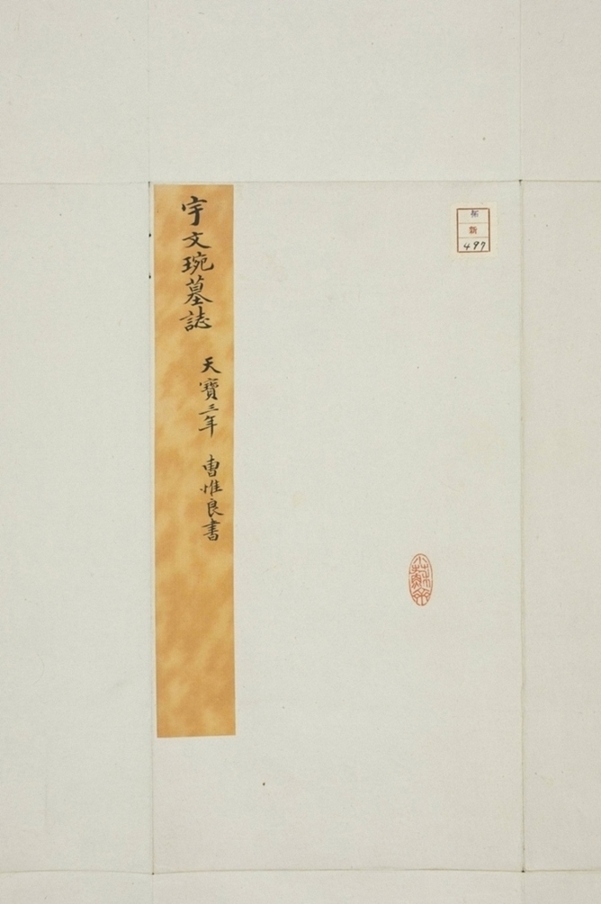 宇文琬墓誌
天寶三年 曹惟良書
497